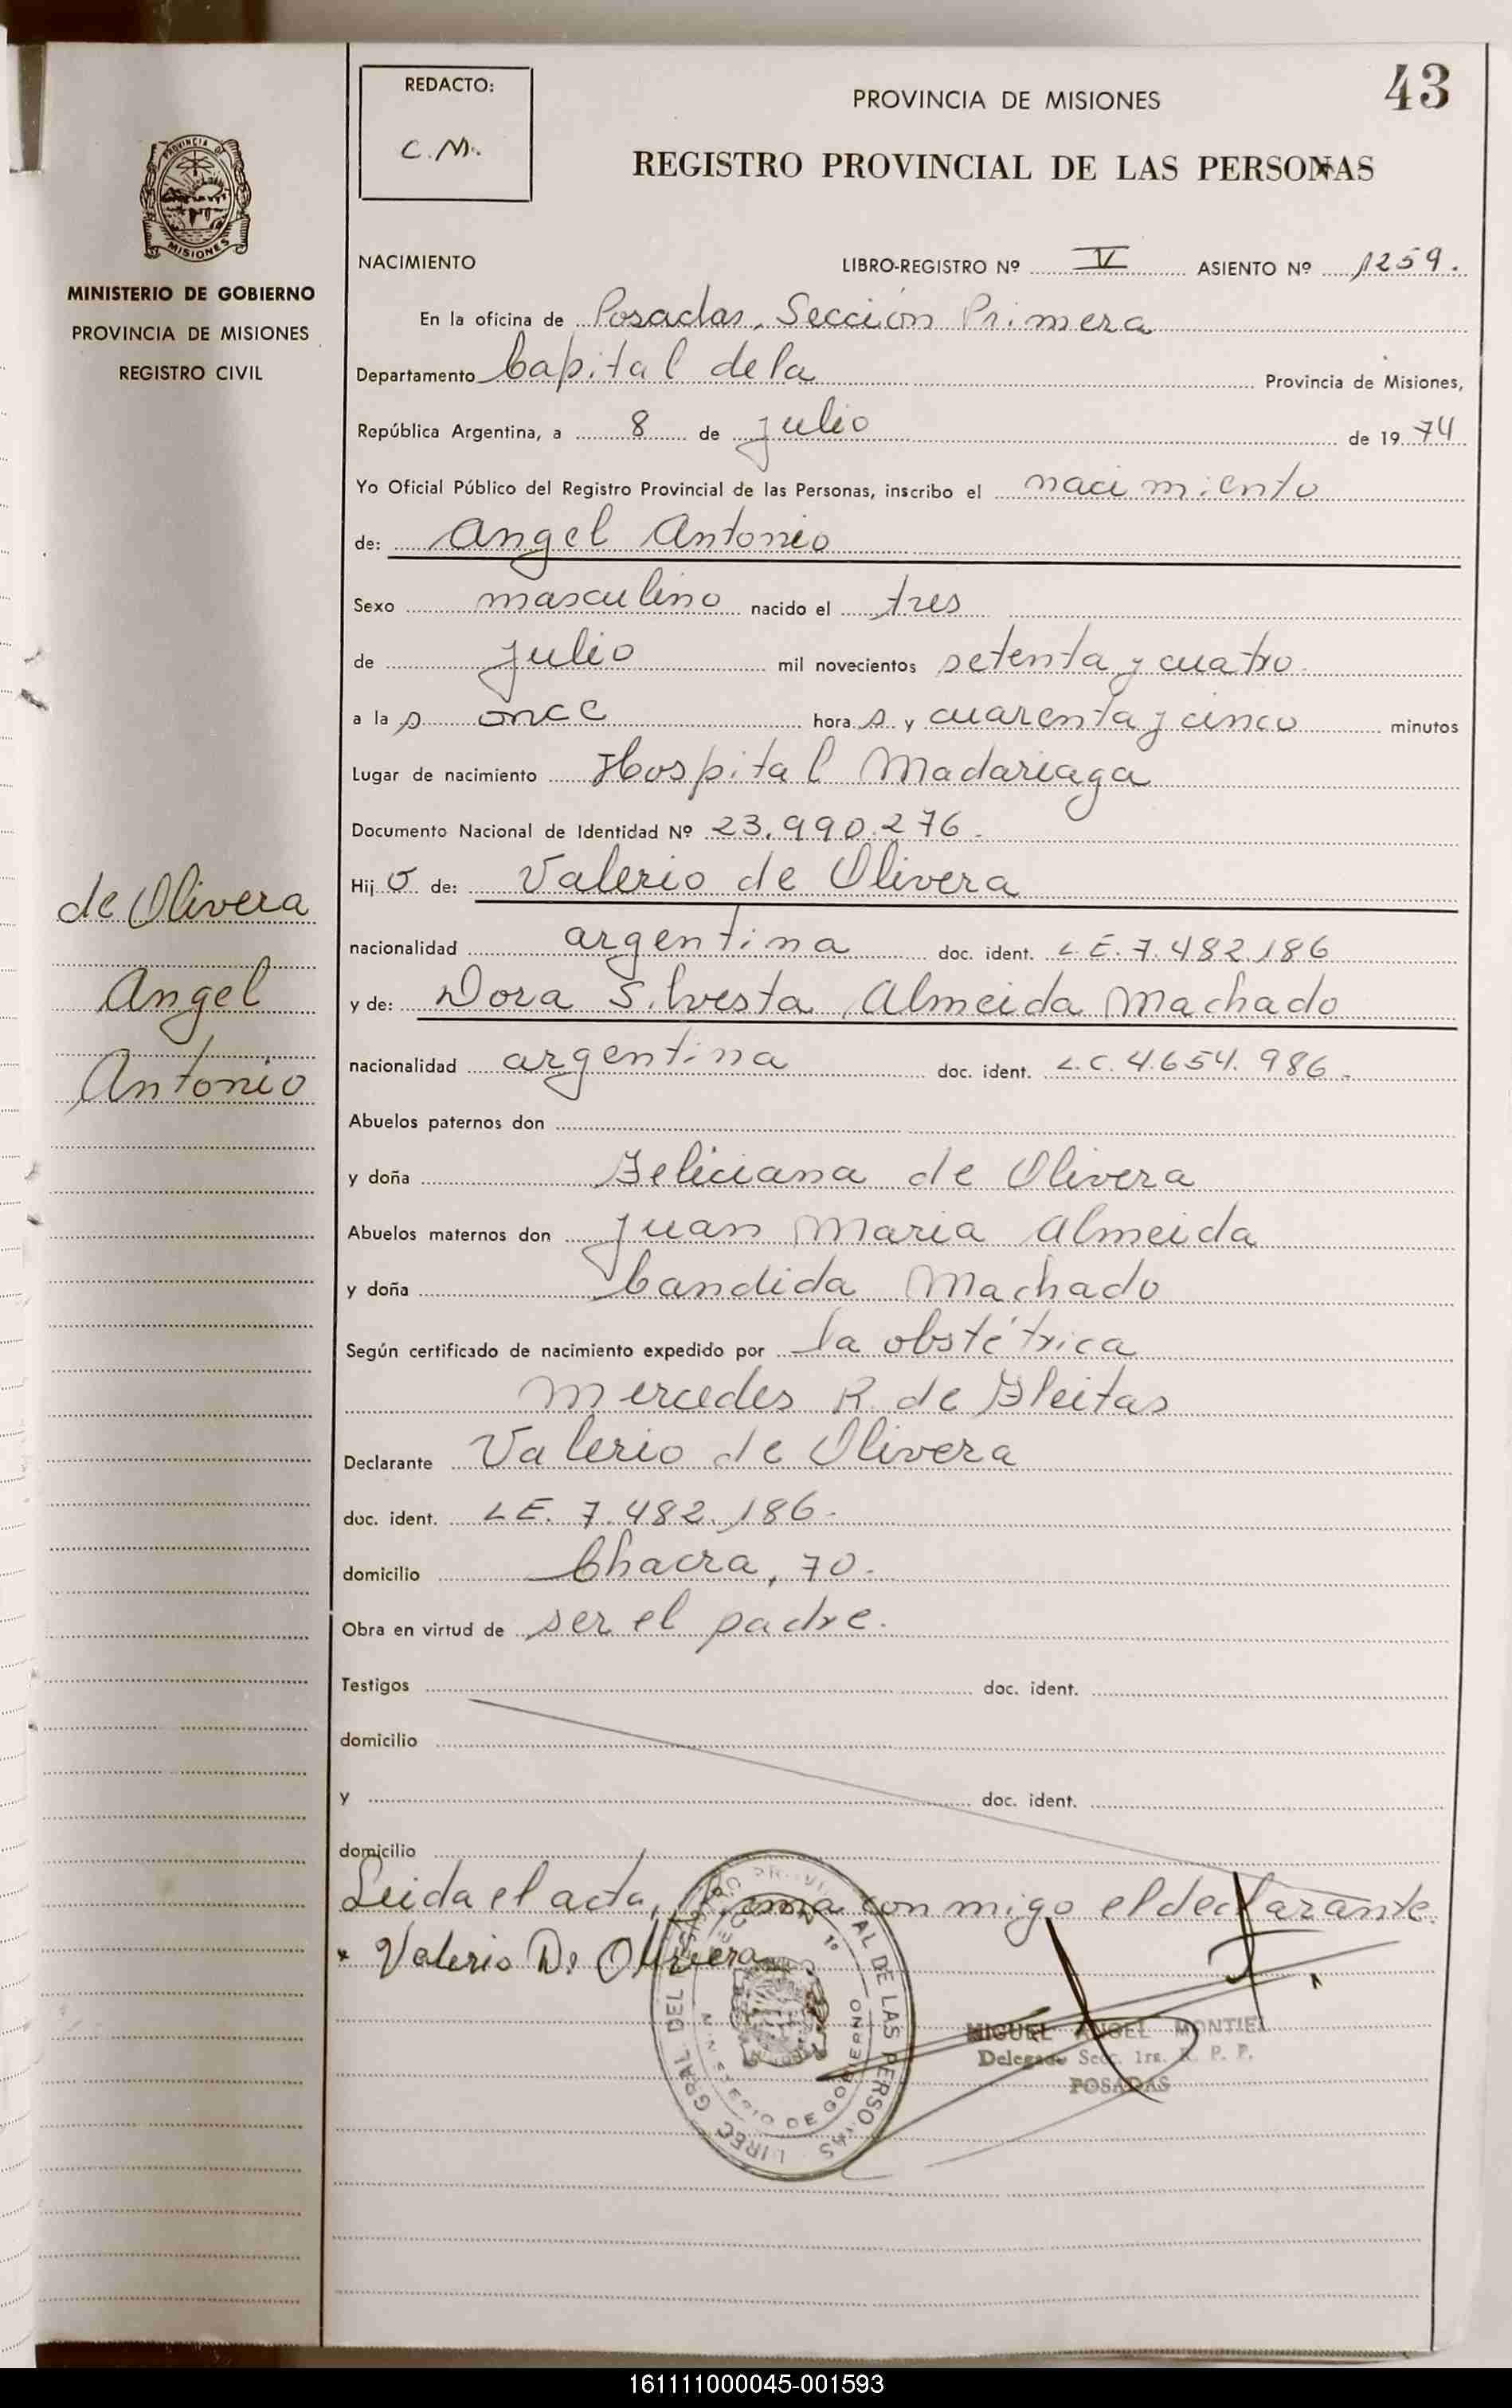 43
REDACTO:
C.M.
PROVINCIA DE MISIONES
REGISTRO PROVINCIAL DE LAS PERSONAS
PROVINCIA DE
MISIONES
MINISTERIO DE GOBIERNO
PROVINCIA DE MISIONES
REGISTRO CIVIL
NACIMIENTO LIBRO-REGISTRO Nº V ASIENTO Nº 1259.
En la oficina de Posadas, Sección Primera
Departamento Capital de la Provincia de Misiones,
República Argentina, a 8 de julio de 1974
Yo Oficial Público del Registro Provincial de las Personas, inscribo el nacimiento
de: Angel Antonio
Sexo masculino nacido el tres
de julio mil novecientos setenta y cuatro.
a la s once hora s y cuarenta y cinco minutos
Lugar de nacimiento Hospital Madariaga
Documento Nacional de Identidad Nº 23.990.276.
Hij o de: Valerio de Olivera
nacionalidad argentina doc. ident. L.E. 7.482.186
y de: Dora Silvesta Almeida Machado
nacionalidad argentina doc. ident. L.C. 4.654.986.
de Olivera
Angel
Antonio
Abuelos paternos don
y doña Feliciana de Olivera
Abuelos maternos don Juan Maria Almeida
y doña Candida Machado
Según certificado de nacimiento expedido por la obstétrica
Mercedes R. de Gleitas
Declarante Valerio de Olivera
doc. ident. L.E. 7.482.186.
domicilio Chacra, 70.
Obra en virtud de ser el padre.
Testigos doc. ident.
domicilio
y doc. ident.
domicilio
Leida el acta, firma conmigo el declarante.
Valerio De Olivera
DIREC GRAL DEL REGISTRO PROVINCIAL DE LAS PERSONAS
MINISTERIO DE GOBIERNO
MIGUEL ANGEL MONTIEL
Delegado Secc. 1ra. R. P. P.
POSADAS
161111000045-001593